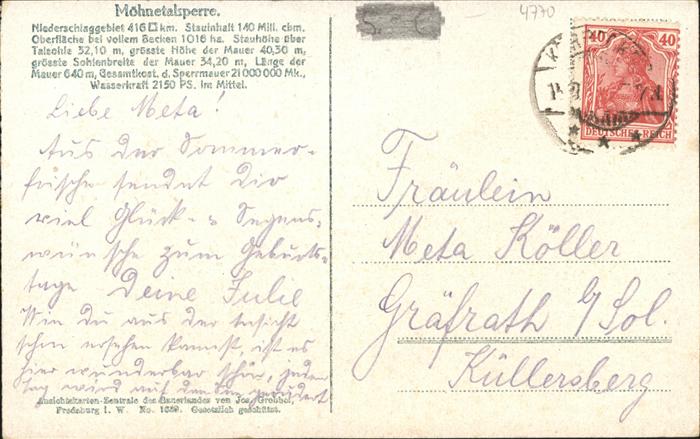 Möhnetalsperre.
Niederschlaggebiet 416 □ km. Stauinhalt 140 Mill. cbm.
Oberfläche bei vollem Becken 1016 ha. Stauhöhe über
Talsohle 32,10 m, grösste Höhe der Mauer 40,30 m,
grösste Sohlenbreite der Mauer 34,20 m, Länge der
Mauer 640 m, Gesamtkost. d. Sperrmauer 21 000 000 Mk.,
Wasserkraft 2150 PS. im Mittel.
Liebe Meta!
Aus der Sommer-
frische sendet Dir
viel Glück- u Segens-
wünsche zum Geburts-
tage Deine Julie
Wie Du aus der Ansicht
schon ersehen kannst, ist es
hier wunderbar schön, jeden
Tag wird auf dem gerudert
Ansichtskarten-Zentrale des Sauerlandes von Jos. Grobbel,
Fredeburg i. W. No. 1639. Gesetzlich geschützt.
4770
40 40
DEUTSCHES REICH
Fräulein
Meta Köller
Gräfrath b/Sol.
Küllersberg